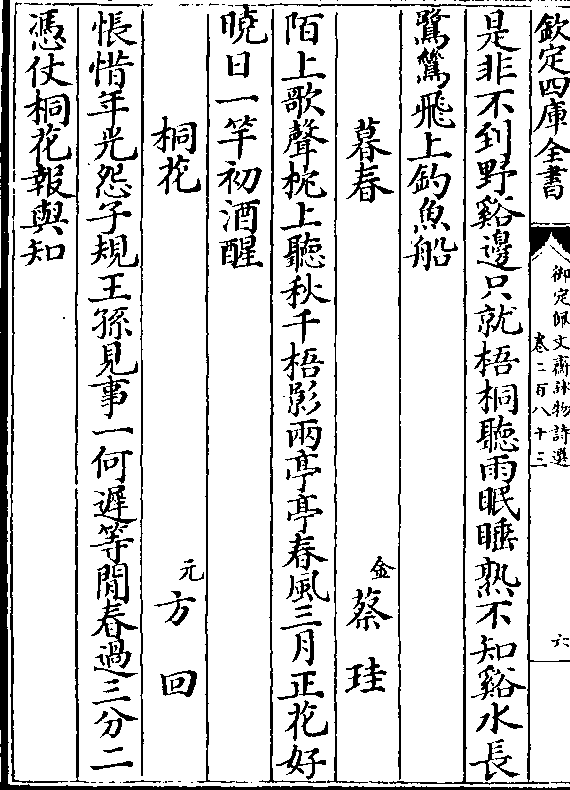 欽定四庫全書
御定佩文齋詠物詩選
卷二百八十三
六
是非不到野谿邊只就梧桐聽雨眠睡熟不知谿水長
鷺鷥飛上釣魚船
暮春
金蔡珪
陌上歌聲枕上聽秋千梧影兩亭亭春風三月正花好
曉日一竿初酒醒
桐花
元方回
悵惜年光怨子規王孫見事一何遲等閒春過三分二
憑仗桐花報與知